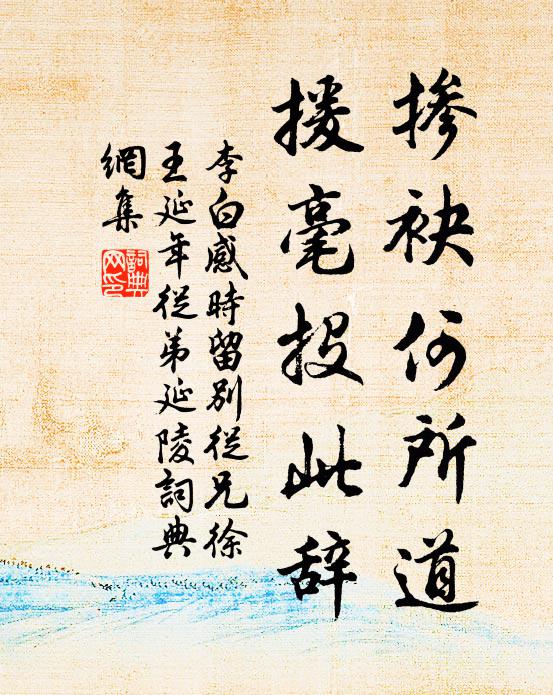 掺袂何所道
援毫投此辞
李白感時留別從兄徐
王延年從弟延陵詞典
網集
詞典
网印